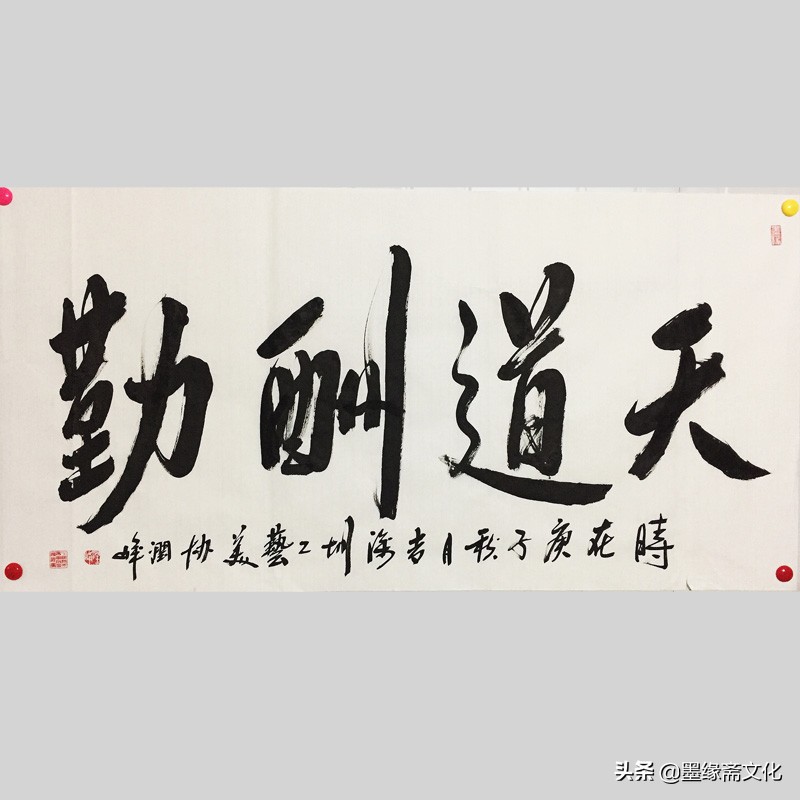 天道酬勤
時在庚子秋月書深圳工藝美协潤峰
头条 @墨缘斋文化